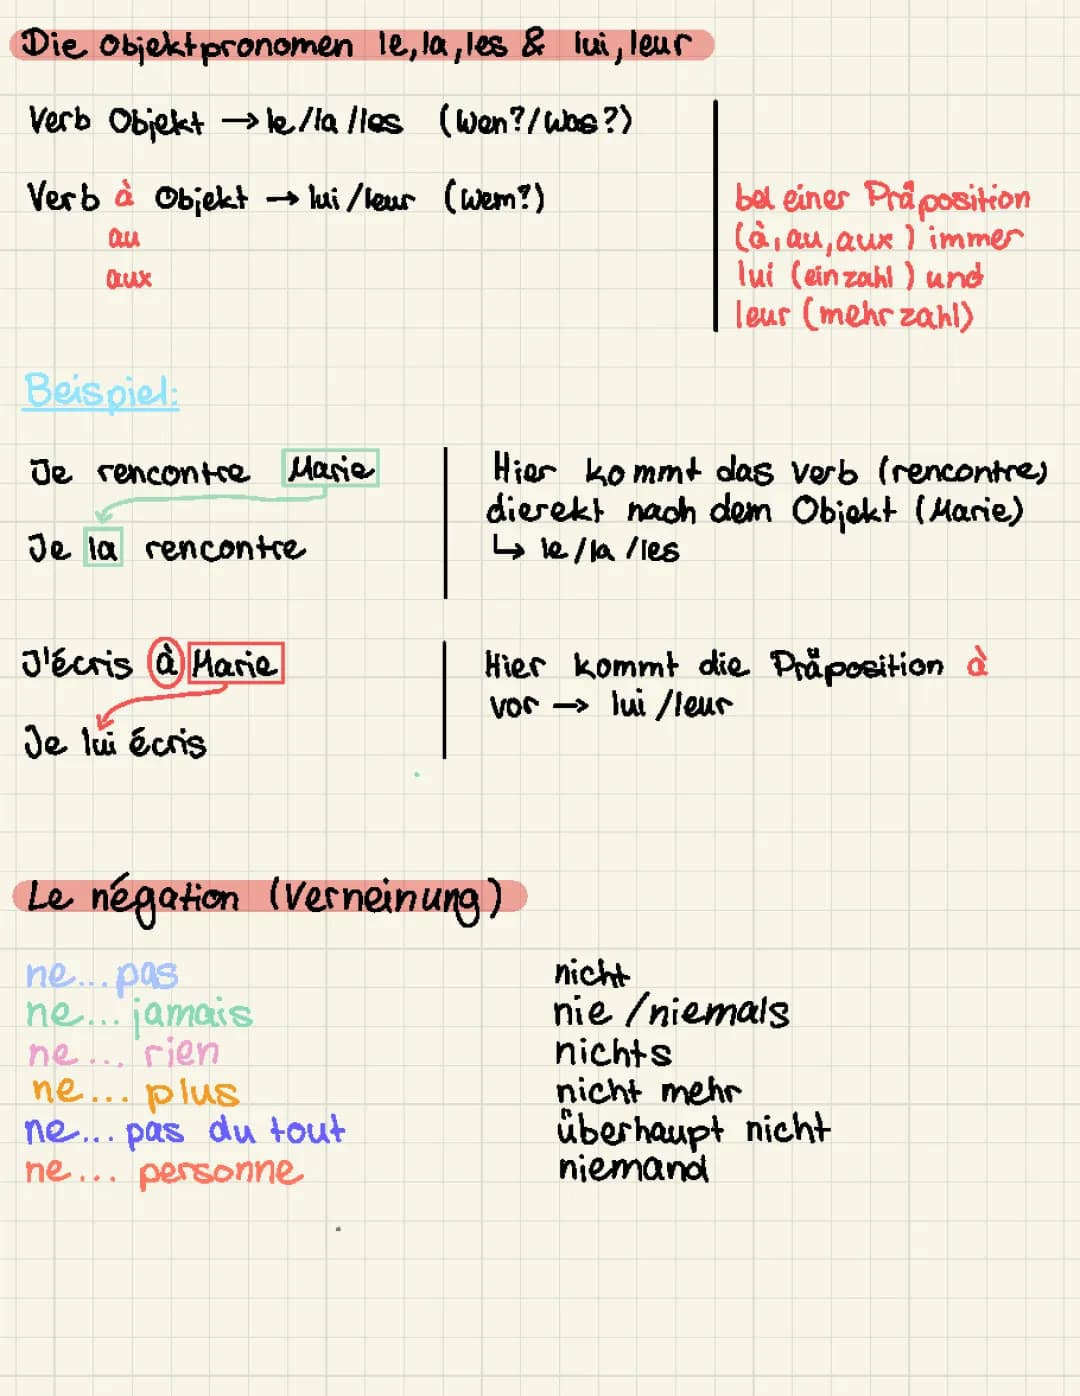 Die Objektpronomen le, la, les & lui, leur
Verb Objekt → le/la/les (Wen?/Was?)
Verb à Objekt → lui/leur (Wem?)
au
aux
bei einer Präposition
(à, au, aux) immer
lui (einzahl) und
leur (mehrzahl)
Beispiel:
Je rencontre Marie
Je la rencontre
Hier kommt das Verb (rencontre)
dierekt nach dem Objekt (Marie)
↳ le/la/les
J'écris à Marie
Je lui écris
Hier kommt die Präposition à
vor → lui/leur
Le négation (Verneinung)
ne...pas nicht
ne... jamais nie/niemals
ne... rien nichts
ne... plus nicht mehr
ne... pas du tout überhaupt nicht
ne... personne niemand